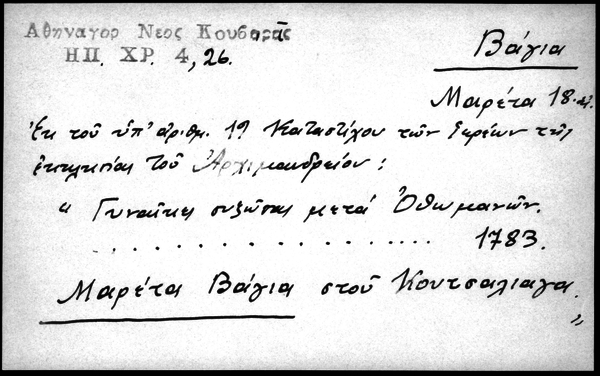 Αθηναγορ Νεος Κουβαρᾶς
ΗΠ. ΧΡ. 4, 26.
Βάγια
Μαρέτα 18.
Ἐκ τοῦ ὑπ' ἀριθμ. 19 Καταστίχου τῶν ἱερέων τῆς
ἐκκλησίας τοῦ Ἀρχιμανδρείου :
“ Γυναῖκες συζῶσαι μετά Ὀθωμανῶν.
. . . . . . . . . . . . . . . . . . . 1783.
Μαρέτα Βάγια στοῦ Κουτσαλιαγα. „